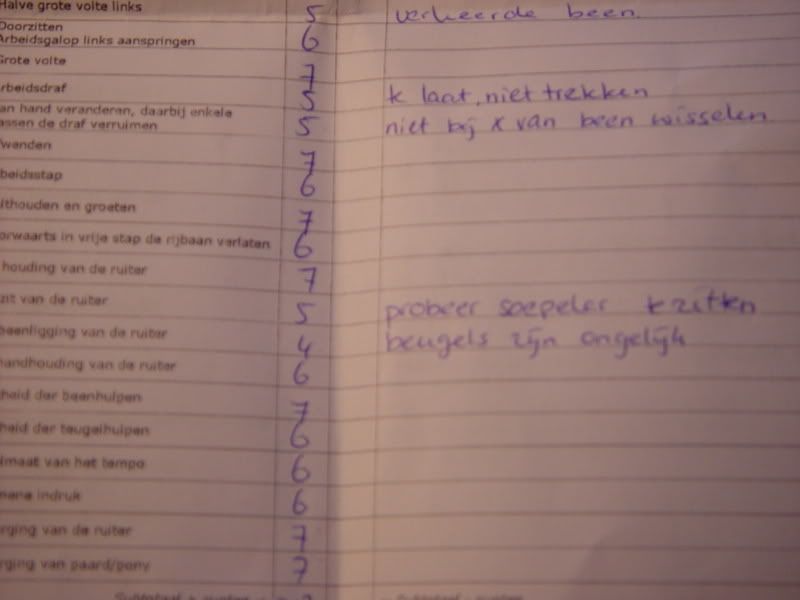 Halve grote volte links 5 verkeerde been.
Doorzitten
Arbeidsgalop links aanspringen 6
Grote volte 7
rbeidsdraf 5 k laat, niet trekken
an hand veranderen, daarbij enkele
assen de draf verruimen 5 niet bij x van been wisselen
wenden 7
beidsstap 6
lthouden en groeten 7
orwaarts in vrije stap de rijbaan verlaten 6
houding van de ruiter 7
zit van de ruiter 5 probeer soepeler te zitten
beenligging van de ruiter 4 beugels zijn ongelijk
handhouding van de ruiter 6
heid der beenhulpen 7
heid der teugelhulpen 6
lmaat van het tempo 6
mene indruk 6
rging van de ruiter 7
rging van paard/pony 7